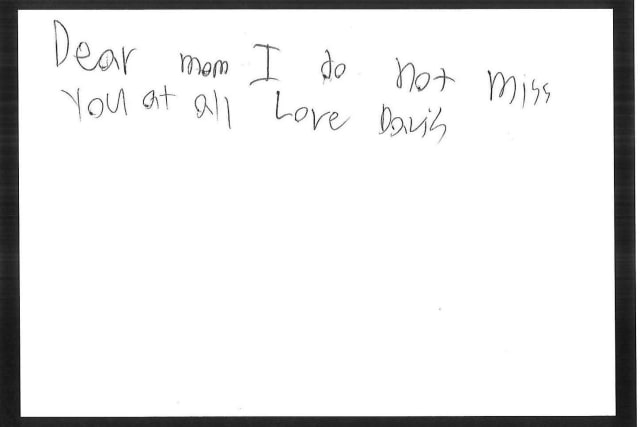 Dear mom I do not miss
You at all Love Davis